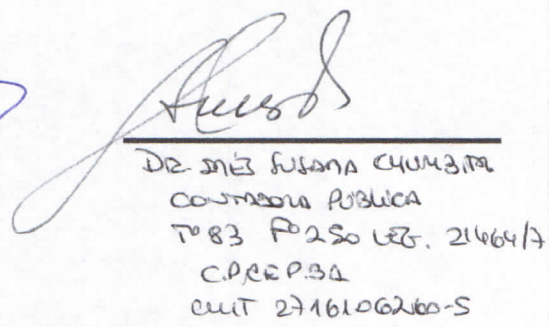 DRA. INÉS SUSANA CHUMBITA
CONTADORA PÚBLICA
Tº 83 Fº 250 LEG. 21464/7
C.P.C.E.P.BA
CUIT 27161062160-5